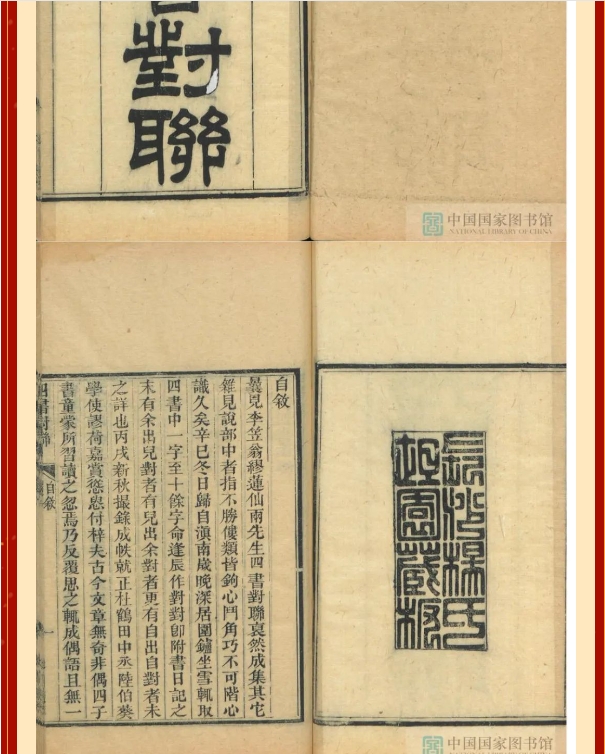 對
聯
中国国家图书馆
NATIONAL LIBRARY OF CHINA
長沙楊氏
坦園藏板
自敘
曩見李笠翁繆蓮仙兩先生四書對聯裒然成集其它
雜見說部中者指不勝僂類皆鉤心鬥角巧不可階心
識久矣辛巳冬日歸自滇南歲晚深居圍鑪坐雪輒取
四書中一字至十餘字命逢辰作對對卽附書日記之
末有余出兒對者有兒出余對者更有自出自對者未
之詳也丙戌新秋撮錄成帙就正杜鶴田中丞陸伯葵
學使謬荷嘉賞慫恿付梓夫古今文章無奇非偶四子
書童蒙所習讀之忽焉乃反覆思之輒成偶語且無一
四書對聯
自敘
一
中国国家图书馆